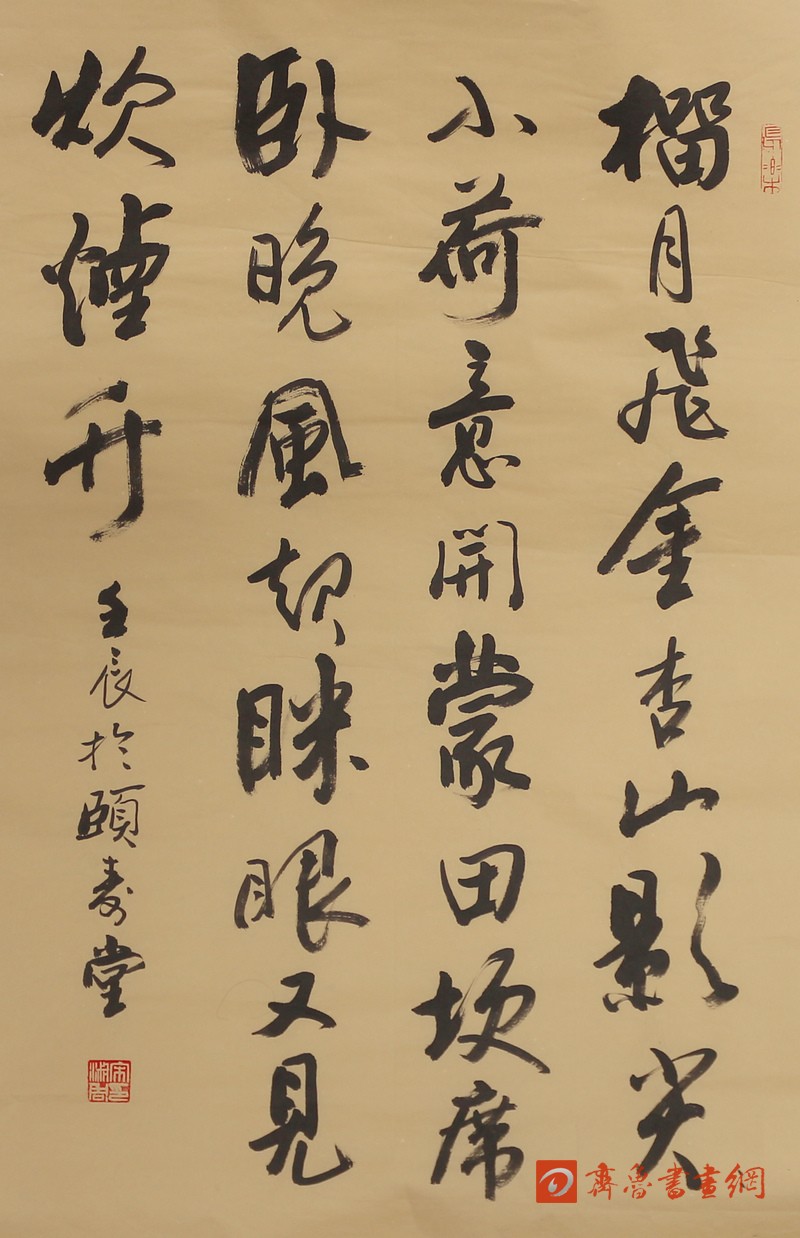 長樂
榴月飛金杏山影尖
小荷意開蒙田坎席
卧晚風起眯眼又見
炊煙升
壬辰於頤壽堂
齊魯書畫網